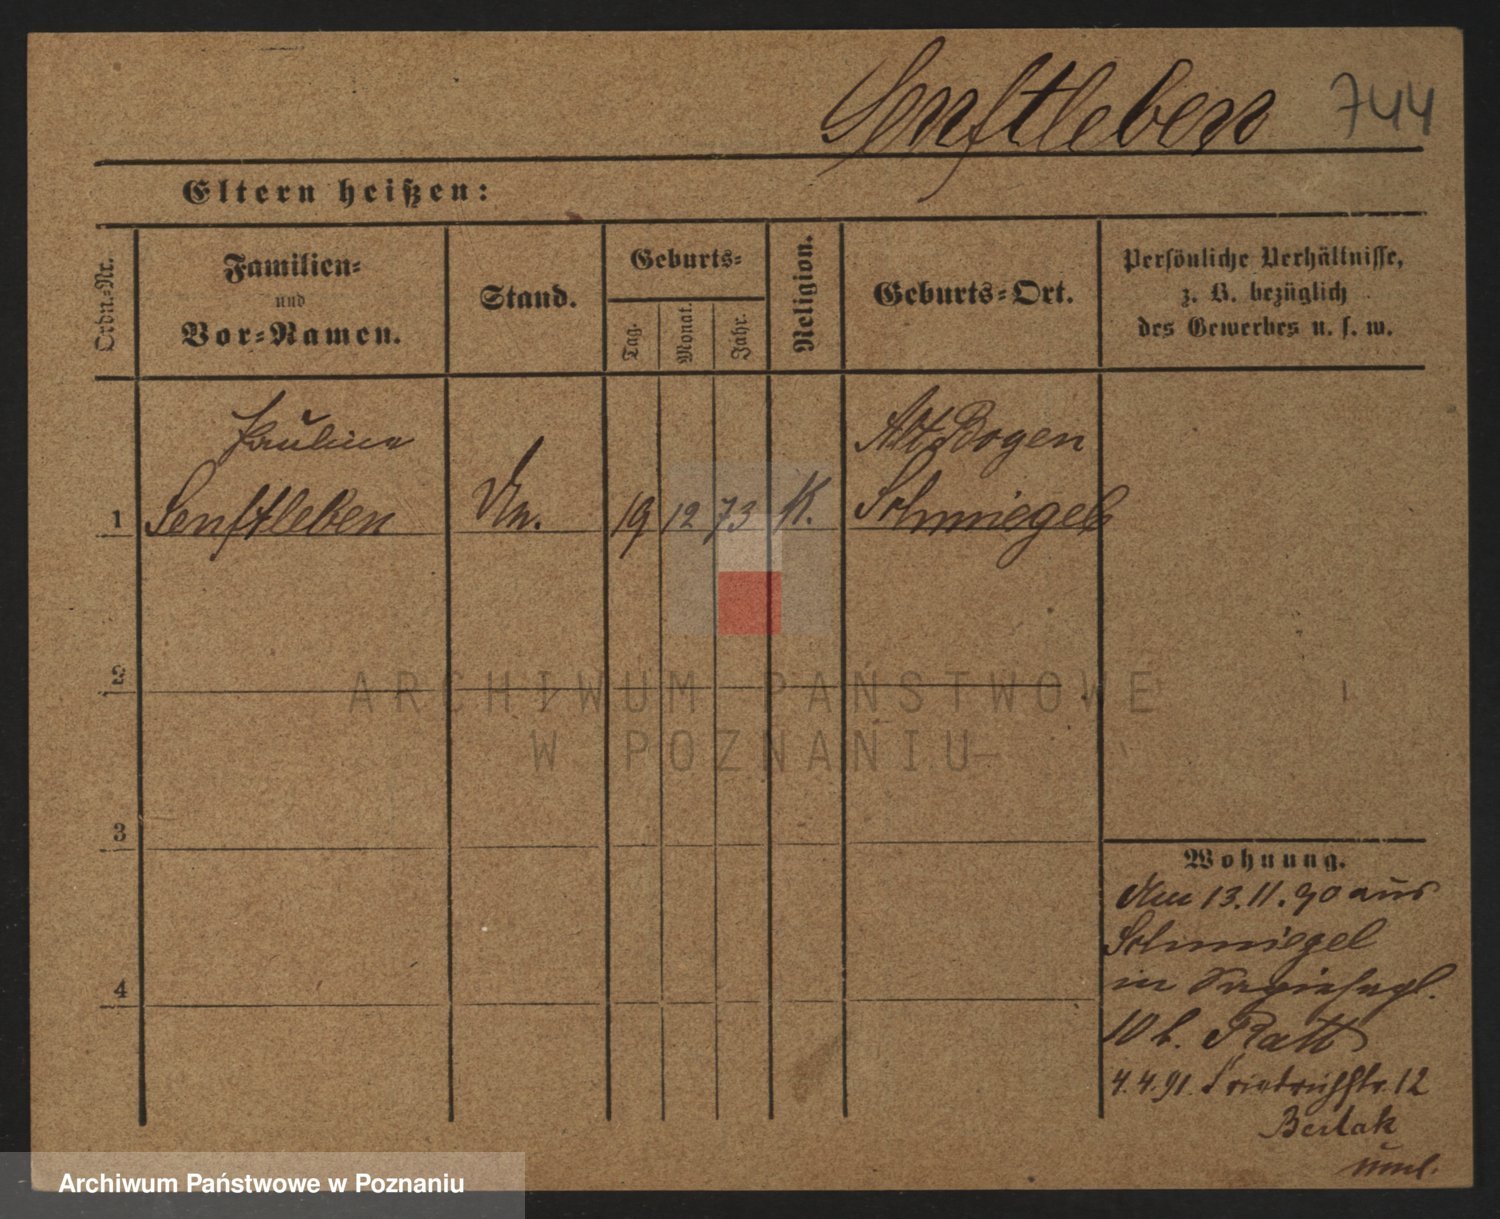 Senftleben 744
Eltern heißen:
Ordn.-Nr.
Familien-
und
Vor-Namen.
Stand.
Geburts-
Tag.
Monat.
Jahr.
Religion.
Geburts-Ort.
Persönliche Verhältnisse,
z. B. bezüglich
des Gewerbes u. s. w.
Pauline
Alt Bogen
1 Senftleben
19 12 73 K.
Schmiegel
2
3
4
Wohnung.
13.11.90 aus
Schmiegel
in
10 b. Ratt
4.4.91. Friedrichstr. 12
uml.
ARCHIWUM PAŃSTWOWE
W POZNANIU
Archiwum Państwowe w Poznaniu